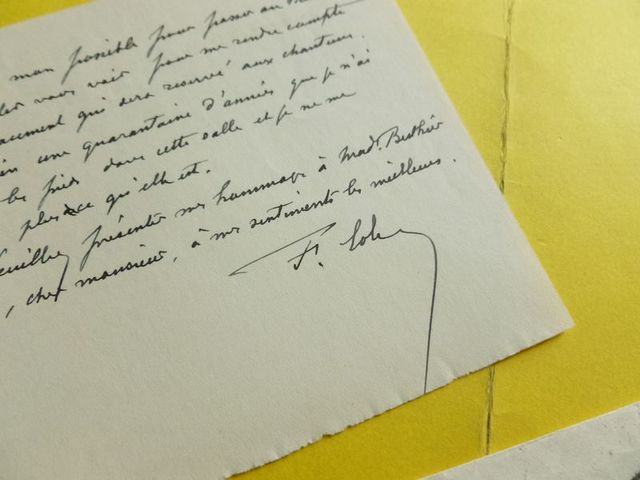 mon possible pour passer au
vous voir pour me rendre compte
qui sera réservé aux chanteurs.
une quarantaine d'années que je n'ai
les pieds dans cette salle et je ne me
plus ce qu'elle est.
présenter mes hommages à Mad. Berthier
, cher monsieur, à mes sentiments les meilleurs.